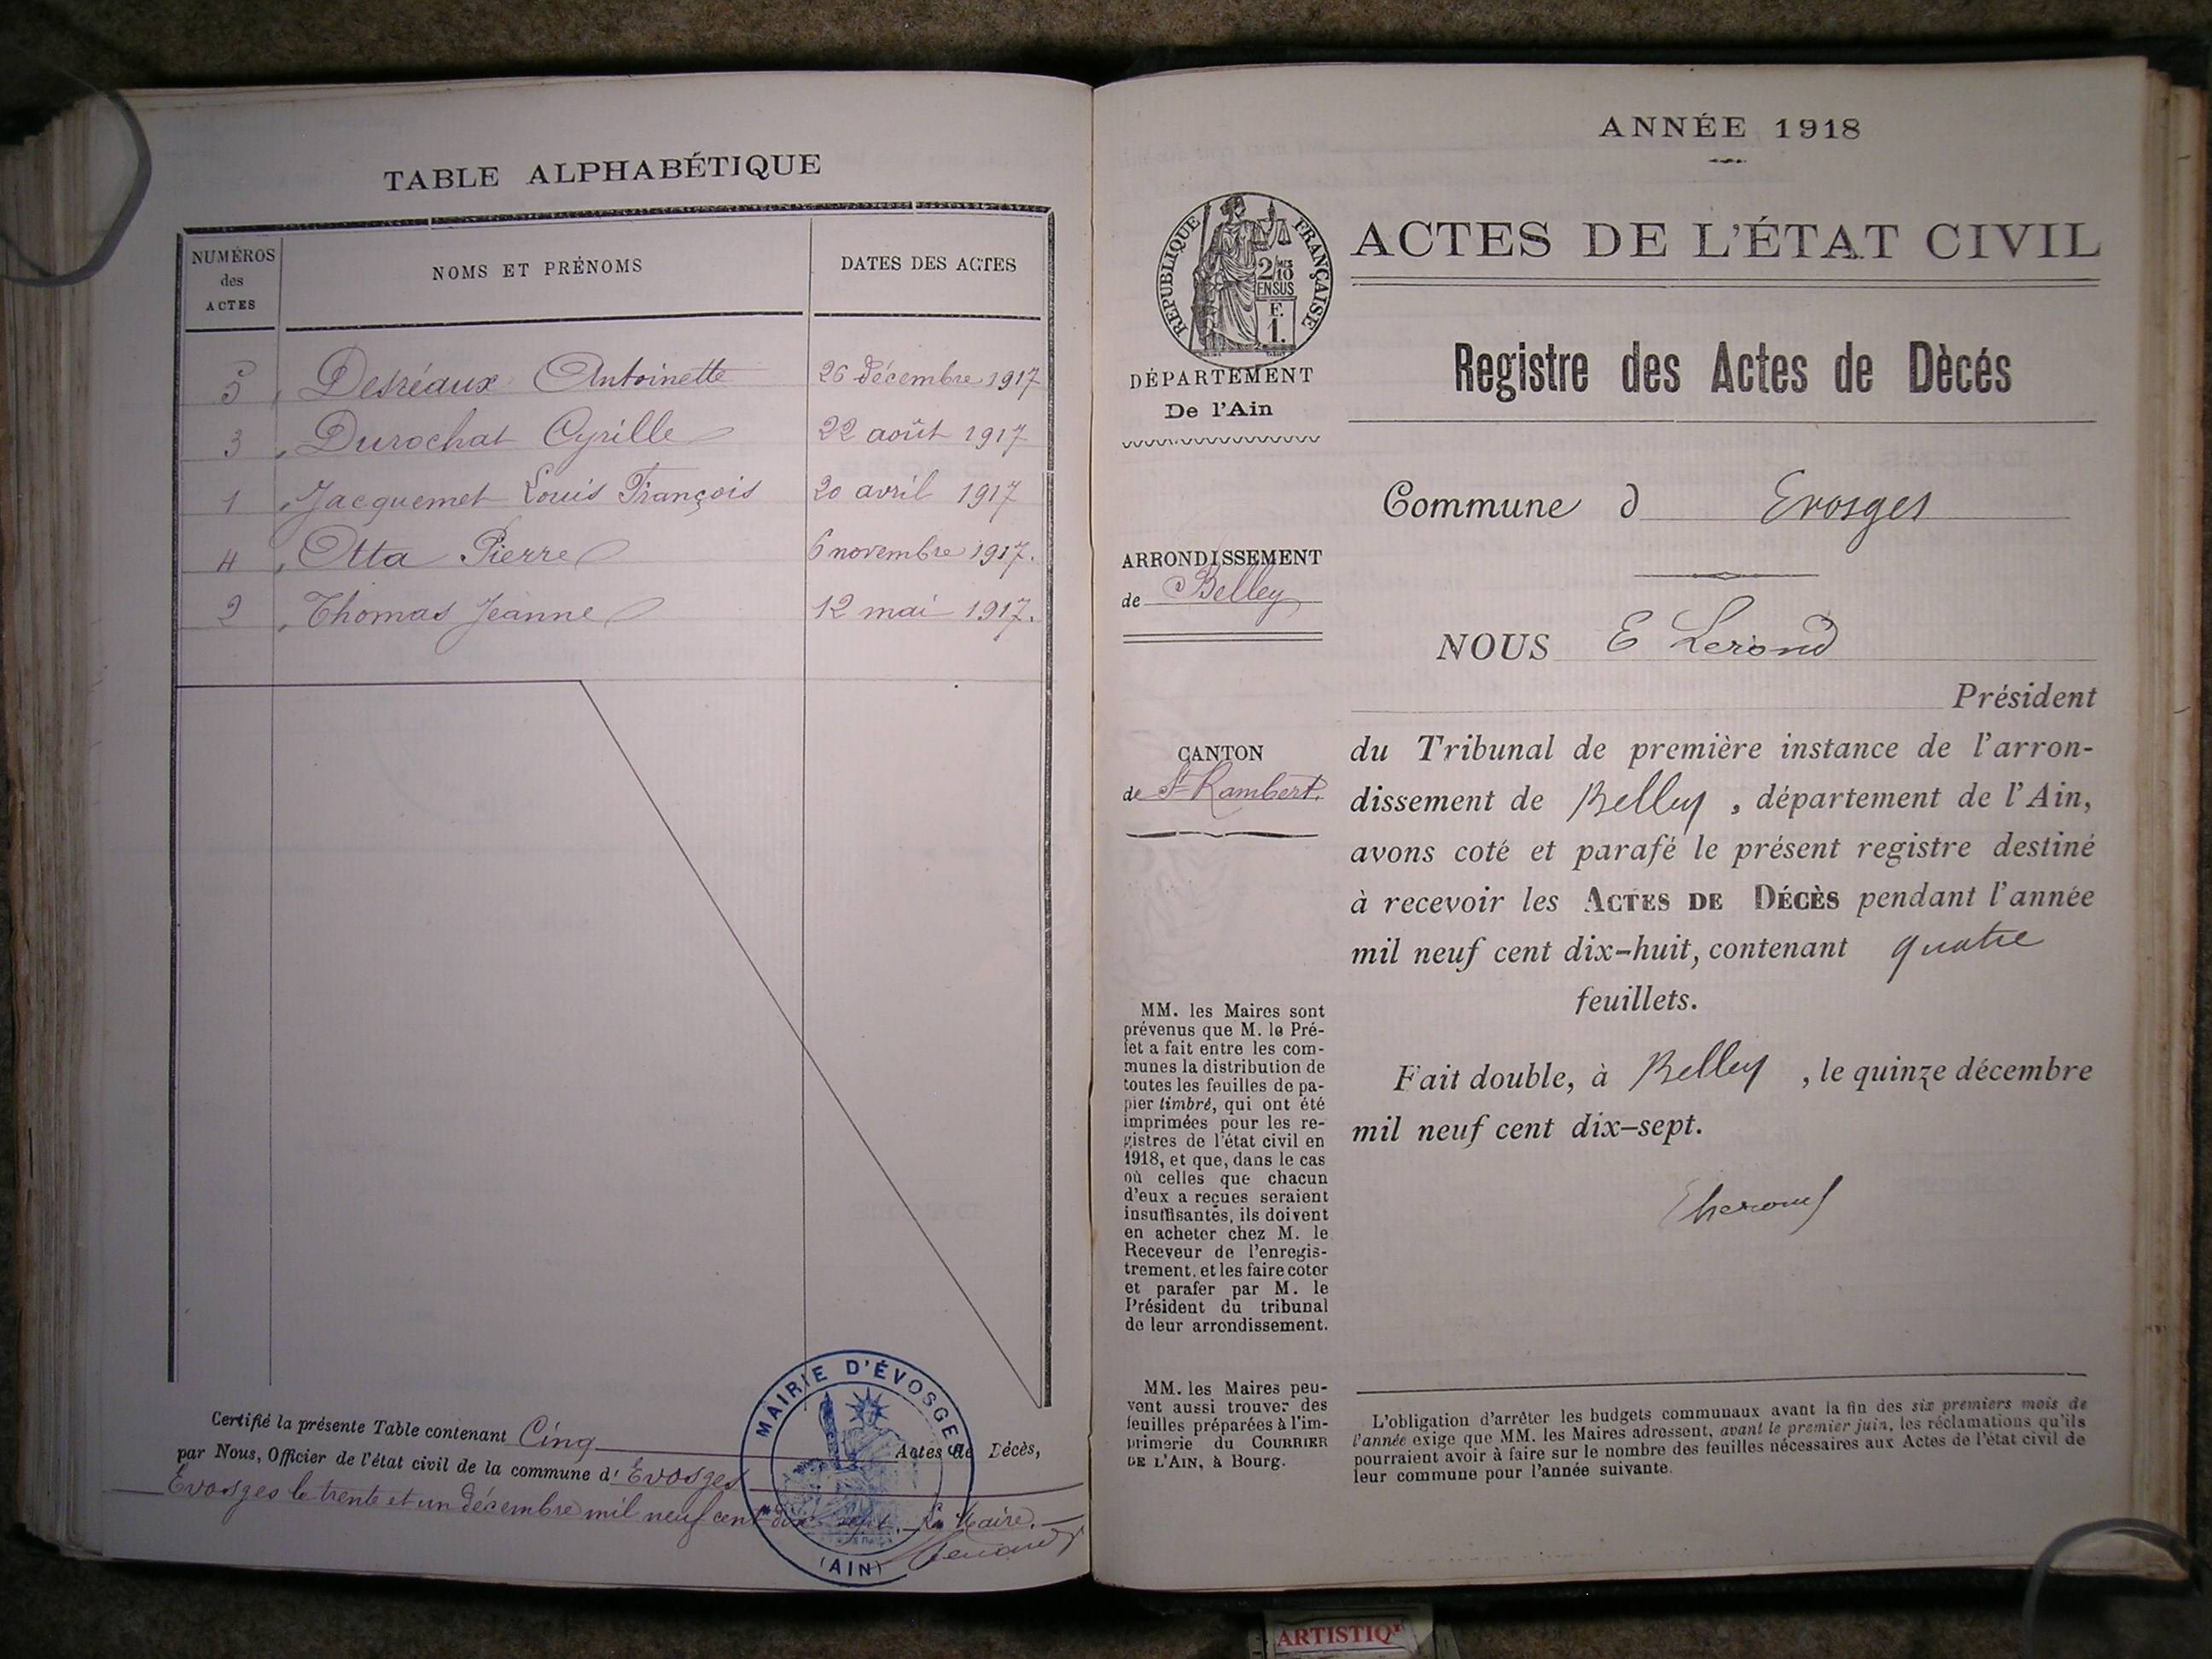 TABLE ALPHABÉTIQUE
NUMÉROS des ACTES
NOMS ET PRÉNOMS
DATES DES ACTES
5 Desréaux Antoinette 26 décembre 1917
3 Durochat Cyrille 22 août 1917
1 Jacquemet Louis François 20 avril 1917
4 Otta Pierre 6 novembre 1917.
2 Thomas Jeanne 12 mai 1917.
Certifié la présente Table contenant Cinq Actes de Décès,
par Nous, Officier de l'état civil de la commune d'Evosges
Evosges le trente et un décembre mil neuf cent dix sept. Le Maire.
MAIRIE D'ÉVOSGES
(AIN)
ANNÉE 1918
RÉPUBLIQUE FRANÇAISE
2/10
EN SUS
F.
1.
ACTES DE L'ÉTAT CIVIL
DÉPARTEMENT
De l'Ain
Registre des Actes de Dècés
Commune d Evosges
ARRONDISSEMENT
de Belley
CANTON
de St Rambert.
NOUS E Lerond
Président
du Tribunal de première instance de l'arron-
dissement de Belley, département de l'Ain,
avons coté et parafé le présent registre destiné
à recevoir les ACTES DE DÉCÈS pendant l'année
mil neuf cent dix-huit, contenant quatre
feuillets.
Fait double, à Belley, le quinze décembre
mil neuf cent dix-sept.
MM. les Maires sont
prévenus que M. le Pré-
fet a fait entre les com-
munes la distribution de
toutes les feuilles de pa-
pier timbré, qui ont été
imprimées pour les re-
gistres de l'état civil en
1918, et que, dans le cas
où celles que chacun
d'eux a reçues seraient
insuffisantes, ils doivent
en acheter chez M. le
Receveur de l'enregis-
trement, et les faire coter
et parafer par M. le
Président du tribunal
de leur arrondissement.
MM. les Maires peu-
vent aussi trouver des
feuilles préparées à l'im-
primerie du COURRIER
DE L'AIN, à Bourg.
L'obligation d'arrêter les budgets communaux avant la fin des six premiers mois de
l'année exige que MM. les Maires adressent, avant le premier juin, les réclamations qu'ils
pourraient avoir à faire sur le nombre des feuilles nécessaires aux Actes de l'état civil de
leur commune pour l'année suivante.
ARTISTIQ